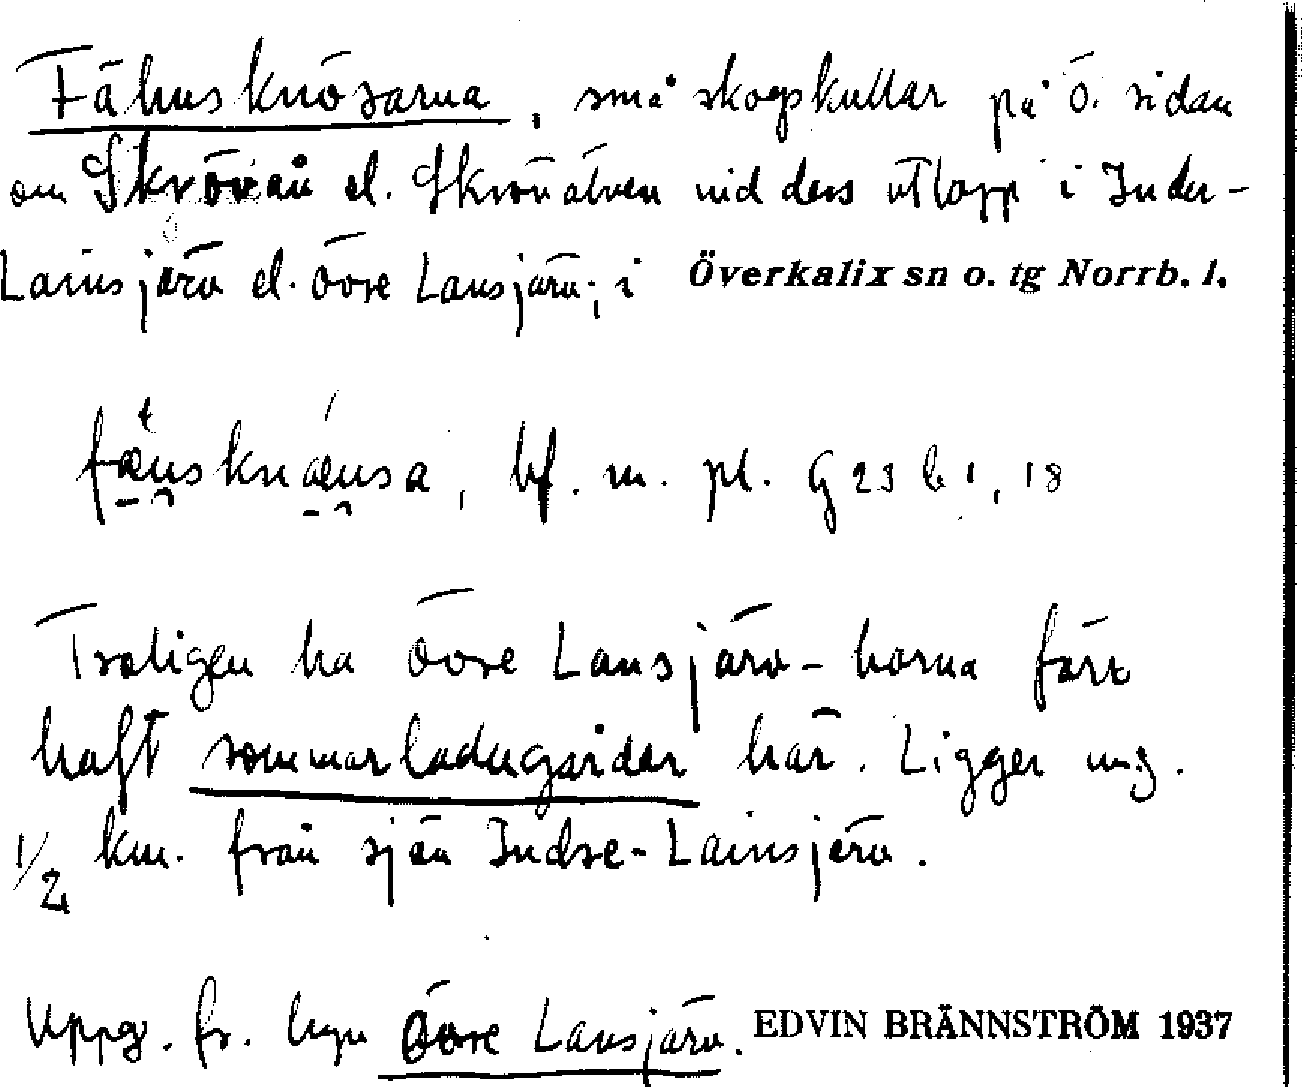 Fähusknösarna, små skogskullar på ö. sidan
om Skrövån el. Skrövälven vid dess utlopp i Inder-
Lainsjärv el. Övre Lansjärv; i Överkalix sn o. tg Norrb. l.
bf. m. pl. G 23 b 1, 18
Troligen ha Övre Lansjärv-borna förr
haft sommarladugårdar här. Ligger ung.
1/2 km. från sjön Indre-Lainsjärv.
Uppg. fr. byn Övre Lansjärv. EDVIN BRÄNNSTRÖM 1937